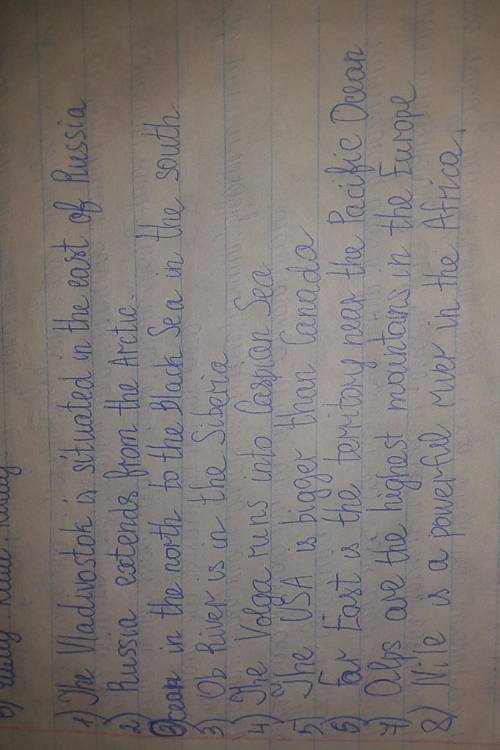 1) The Vladivostok is situated in the east of Russia
2) Russia extends from the Arctic.
Ocean in the north to the Black Sea in the south
3) Ob River is in the Siberia
4) The Volga runs into Caspian Sea
5) The USA is bigger than Canada
6) Far East is the territory near the Pacific Ocean
7) Alps are the highest mountains in the Europe
8) Nile is a powerfull river in the Africa.